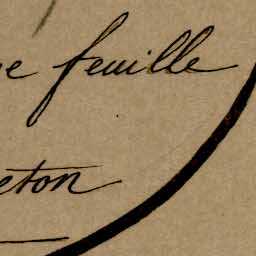 e feuille
eton